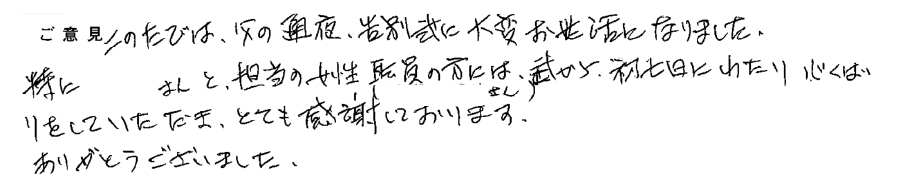 ご意見 このたびは、父の通夜、告別式に大変お世話になりました。
特に さんと、担当の女性職員の方には、式から、初七日にわたり心くば
りをしていただき、とても感謝しております。
ありがとうございました。